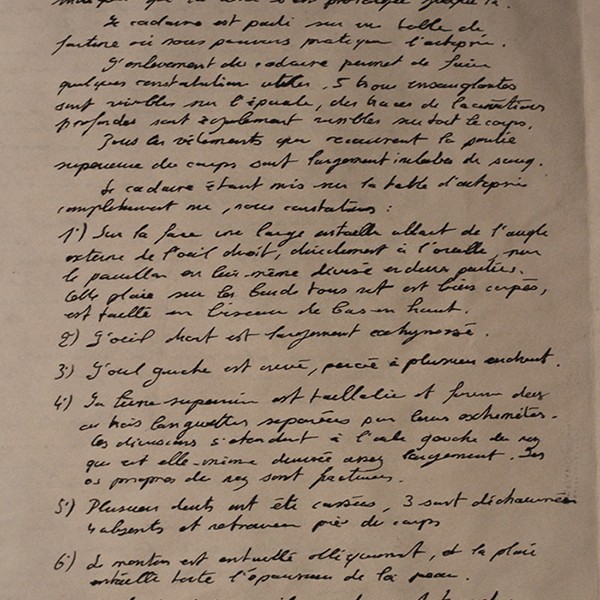 Le cadavre est porté sur une table de
fortune où nous pouvons pratiquer l'autopsie.
L'enlèvement du cadavre permet de faire
quelques constatations utiles. 5 trous ensanglantés
sont visibles sur l'épaule, des traces de lacérations
profondes sont également visibles sur tout le corps.
Tous les vêtements qui recouvrent la partie
supérieure du corps sont largement imbibés de sang.
Le cadavre étant mis sur la table d'autopsie
complètement nu, nous constatons :
1°) Sur la face une large entaille allant de l'angle
externe de l'oeil droit, directement à l'oreille, 
le pavillon en lui-même divisé en deux parties.
Cette plaie sur les bords tous est bien coupés,
est taillé en biseau de bas en haut.
2°) L'oeil droit est largement ecchymosé.
3°) L'oeil gauche est crevé, percé à plusieurs endroits.
4°) La lèvre supérieure est tailladée et forme deux
ou trois languettes séparées par leurs extrémités.
Les divisions s'étendent à l'aile gauche du nez
qui est elle-même divisée assez largement. Les
os propres du nez sont fracturés.
5°) Plusieurs dents ont été cassées, 3 sont déchaussées
4 absents et retrouvés près du corps
6°) Le menton est entaillé obliquement, et la plaie
entaille toute l'épaisseur de la peau.